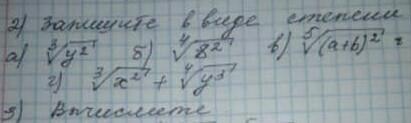 2) Запишите в виде степени
а) ∛y² б) ∜8² в) ⁵√(a+b)²
г) ∛x² + ∜y³
3) Вычислите